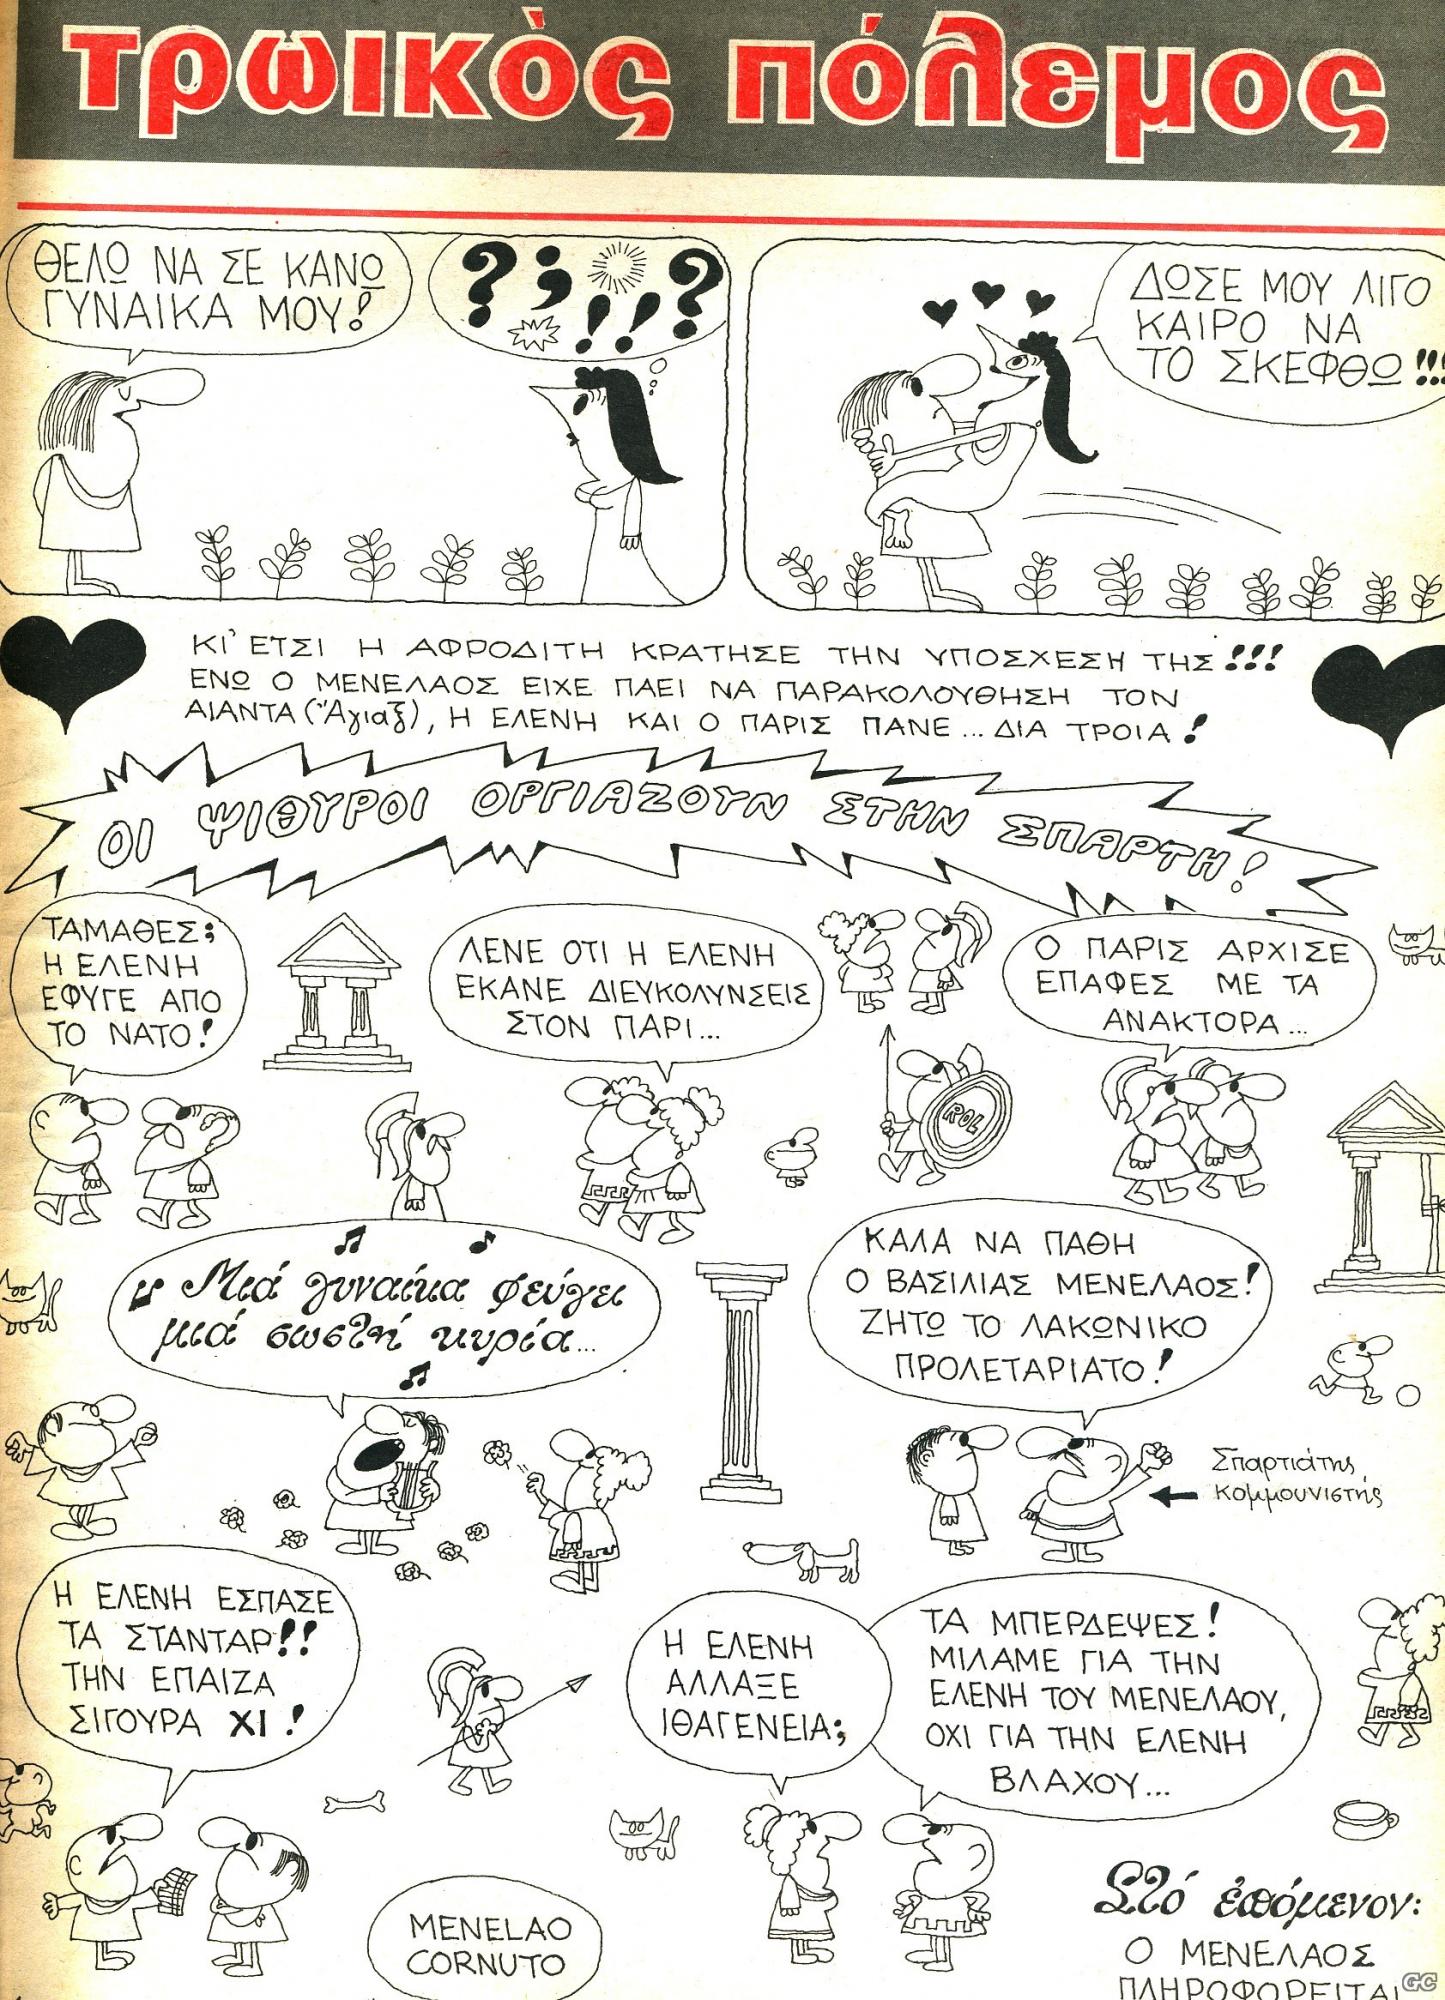 τρωικὸς πόλεμος
ΘΕΛΩ ΝΑ ΣΕ ΚΑΝΩ
ΓΥΝΑΙΚΑ ΜΟΥ!
? ; ! ! ?
ΔΩΣΕ ΜΟΥ ΛΙΓΟ
ΚΑΙΡΟ ΝΑ
ΤΟ ΣΚΕΦΘΩ!!!
ΚΙ' ΕΤΣΙ Η ΑΦΡΟΔΙΤΗ ΚΡΑΤΗΣΕ ΤΗΝ ΥΠΟΣΧΕΣΗ ΤΗΣ!!!
ΕΝΩ Ο ΜΕΝΕΛΑΟΣ ΕΙΧΕ ΠΑΕΙ ΝΑ ΠΑΡΑΚΟΛΟΥΘΗΣΗ ΤΟΝ
ΑΙΑΝΤΑ (Ἄγιαξ), Η ΕΛΕΝΗ ΚΑΙ Ο ΠΑΡΙΣ ΠΑΝΕ... ΔΙΑ ΤΡΟΙΑ!
ΟΙ ΨΙΘΥΡΟΙ ΟΡΓΙΑΖΟΥΝ ΣΤΗΝ ΣΠΑΡΤΗ!
ΤΑΜΑΘΕΣ;
Η ΕΛΕΝΗ
ΕΦΥΓΕ ΑΠΟ
ΤΟ ΝΑΤΟ!
ΛΕΝΕ ΟΤΙ Η ΕΛΕΝΗ
ΕΚΑΝΕ ΔΙΕΥΚΟΛΥΝΣΕΙΣ
ΣΤΟΝ ΠΑΡΙ...
Ο ΠΑΡΙΣ ΑΡΧΙΣΕ
ΕΠΑΦΕΣ ΜΕ ΤΑ
ΑΝΑΚΤΟΡΑ...
ROL
Μιά γυναίκα φεύγει
μιά σωστή κυρία...
ΚΑΛΑ ΝΑ ΠΑΘΗ
Ο ΒΑΣΙΛΙΑΣ ΜΕΝΕΛΑΟΣ!
ΖΗΤΩ ΤΟ ΛΑΚΩΝΙΚΟ
ΠΡΟΛΕΤΑΡΙΑΤΟ!
Σπαρτιάτης
κομμουνιστής
Η ΕΛΕΝΗ ΕΣΠΑΣΕ
ΤΑ ΣΤΑΝΤΑΡ!!
ΤΗΝ ΕΠΑΙΖΑ
ΣΙΓΟΥΡΑ ΧΙ!
Η ΕΛΕΝΗ
ΑΛΛΑΞΕ
ΙΘΑΓΕΝΕΙΑ;
ΤΑ ΜΠΕΡΔΕΨΕΣ!
ΜΙΛΑΜΕ ΓΙΑ ΤΗΝ
ΕΛΕΝΗ ΤΟΥ ΜΕΝΕΛΑΟΥ,
ΟΧΙ ΓΙΑ ΤΗΝ ΕΛΕΝΗ
ΒΛΑΧΟΥ...
MENELAO
CORNUTO
Στό ἑπόμενον:
Ο ΜΕΝΕΛΑΟΣ
ΠΛΗΡΟΦΟΡΕΙΤΑΙ
GC